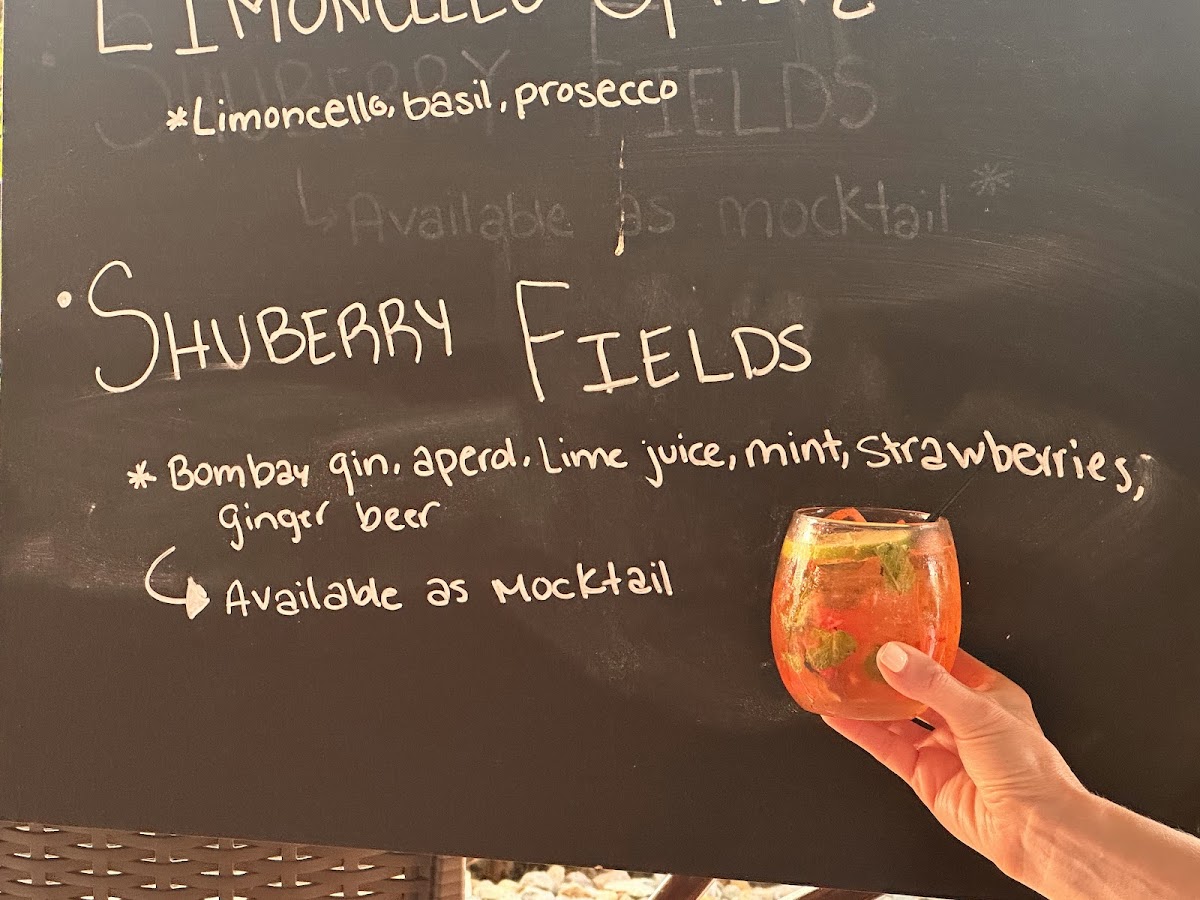 LIMONCELLO SPRITZ
SHUBERRY FIELDS
*Limoncello, basil, prosecco
↳ Available as mocktail *
• SHUBERRY FIELDS
* Bombay gin, aperol, Lime juice, mint, strawberries,
ginger beer
↳ Available as Mocktail